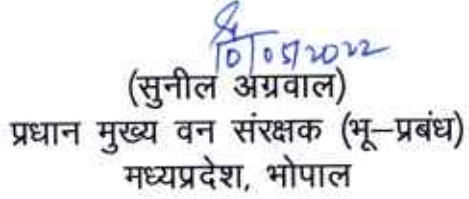 10/05/2022
(सुनील अग्रवाल)
प्रधान मुख्य वन संरक्षक (भू–प्रबंध)
मध्यप्रदेश, भोपाल